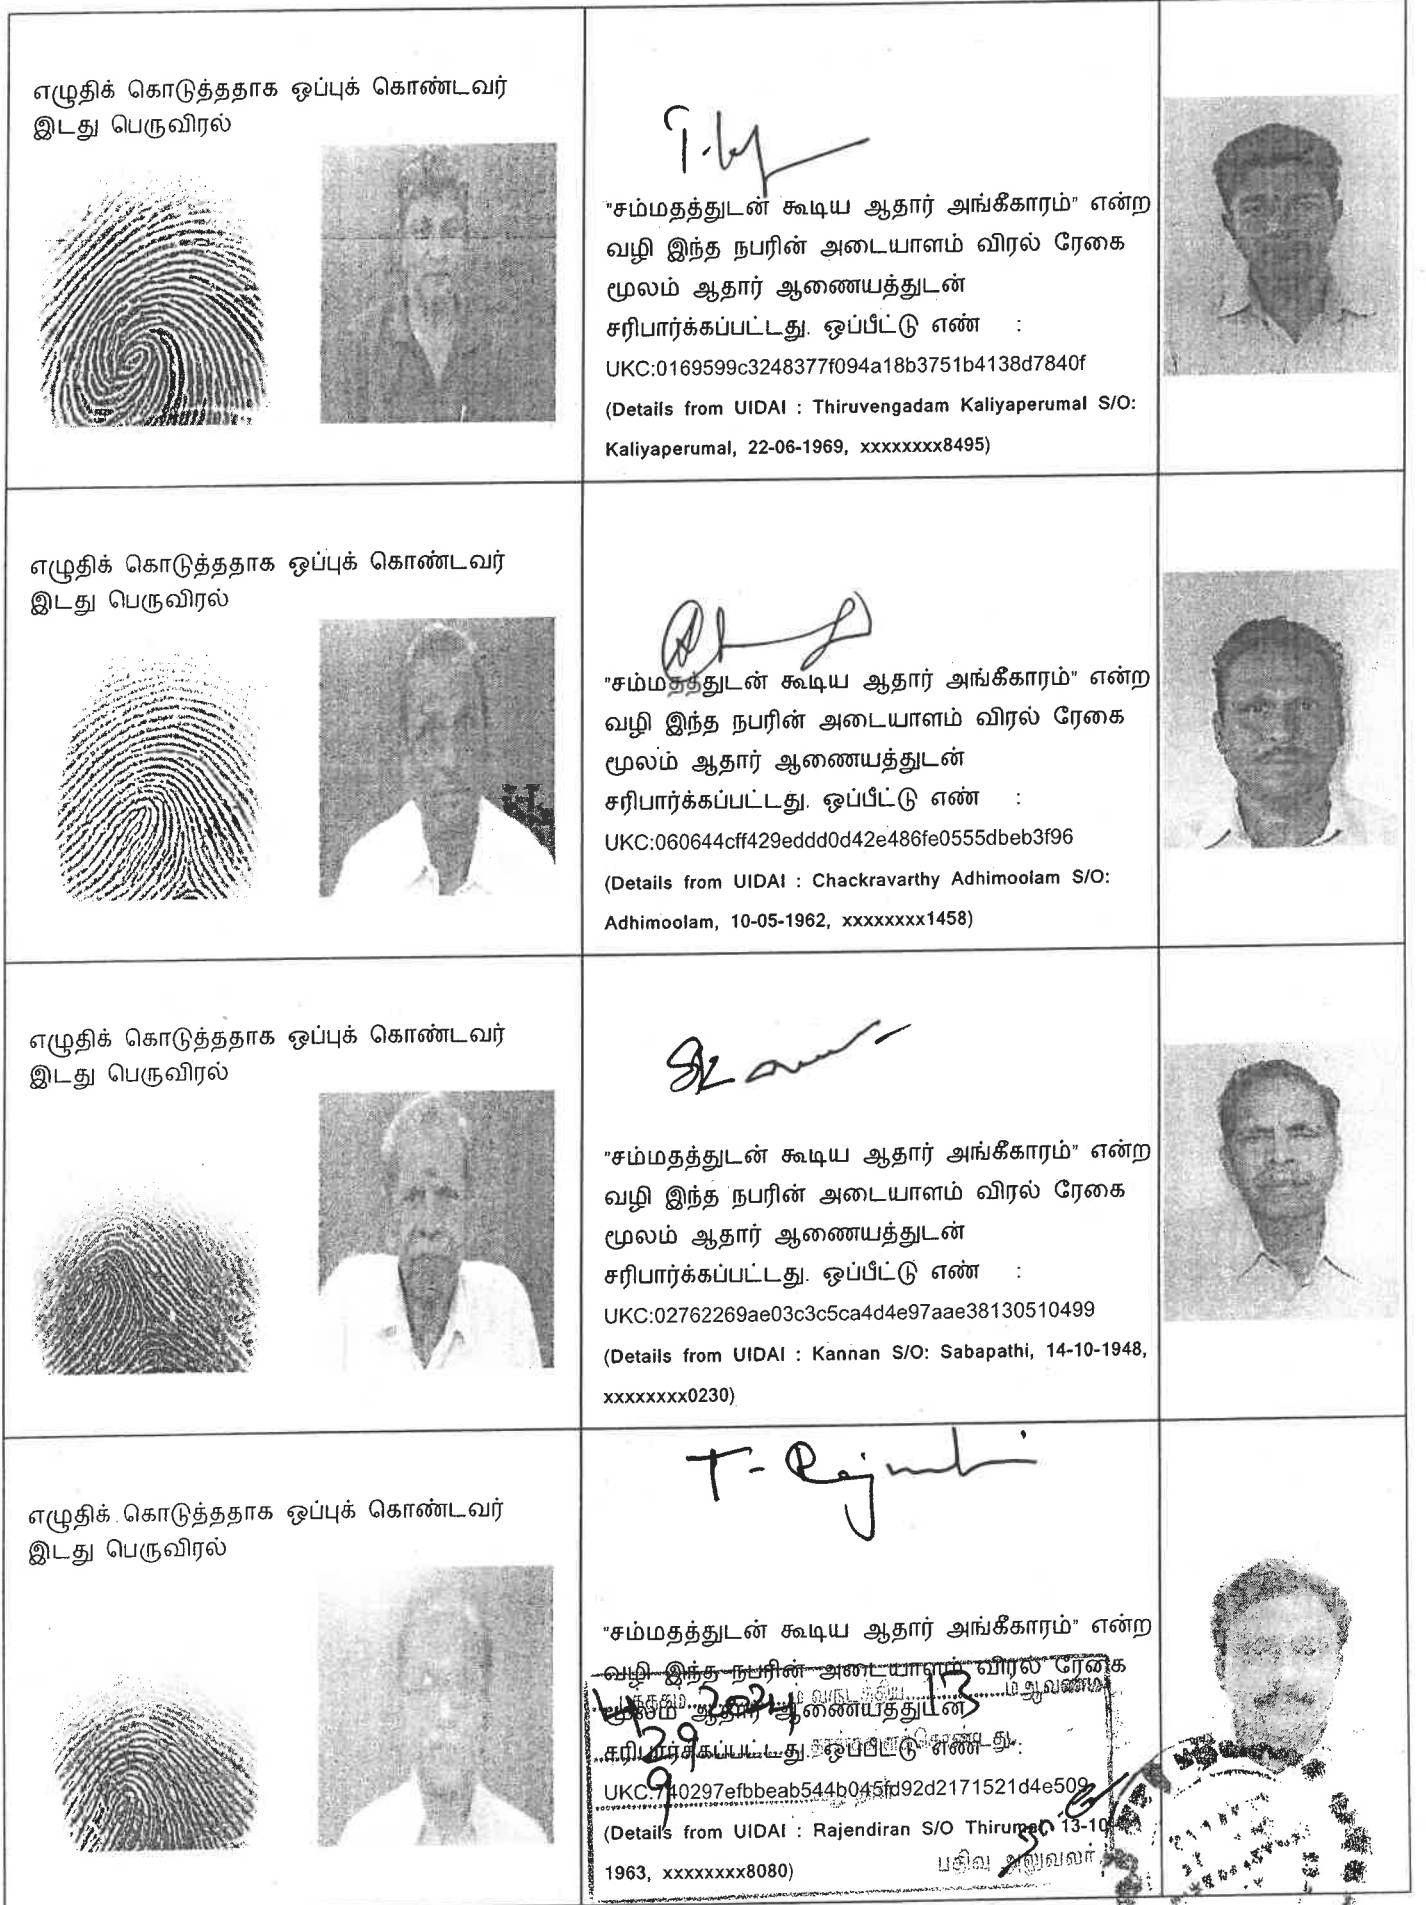 எழுதிக் கொடுத்ததாக ஒப்புக் கொண்டவர்
இடது பெருவிரல்
"சம்மதத்துடன் கூடிய ஆதார் அங்கீகாரம்" என்ற
வழி இந்த நபரின் அடையாளம் விரல் ரேகை
மூலம் ஆதார் ஆணையத்துடன்
சரிபார்க்கப்பட்டது. ஒப்பீட்டு எண் :
UKC:0169599c3248377f094a18b3751b4138d7840f
(Details from UIDAI : Thiruvengadam Kaliyaperumal S/O:
Kaliyaperumal, 22-06-1969, xxxxxxxx8495)
எழுதிக் கொடுத்ததாக ஒப்புக் கொண்டவர்
இடது பெருவிரல்
"சம்மதத்துடன் கூடிய ஆதார் அங்கீகாரம்" என்ற
வழி இந்த நபரின் அடையாளம் விரல் ரேகை
மூலம் ஆதார் ஆணையத்துடன்
சரிபார்க்கப்பட்டது. ஒப்பீட்டு எண் :
UKC:060644cff429eddd0d42e486fe0555dbeb3f96
(Details from UIDAI : Chackravarthy Adhimoolam S/O:
Adhimoolam, 10-05-1962, xxxxxxxx1458)
எழுதிக் கொடுத்ததாக ஒப்புக் கொண்டவர்
இடது பெருவிரல்
"சம்மதத்துடன் கூடிய ஆதார் அங்கீகாரம்" என்ற
வழி இந்த நபரின் அடையாளம் விரல் ரேகை
மூலம் ஆதார் ஆணையத்துடன்
சரிபார்க்கப்பட்டது. ஒப்பீட்டு எண் :
UKC:02762269ae03c3c5ca4d4e97aae38130510499
(Details from UIDAI : Kannan S/O: Sabapathi, 14-10-1948,
xxxxxxxx0230)
எழுதிக் கொடுத்ததாக ஒப்புக் கொண்டவர்
இடது பெருவிரல்
"சம்மதத்துடன் கூடிய ஆதார் அங்கீகாரம்" என்ற
வழி இந்த நபரின் அடையாளம் விரல் ரேகை
2024 ம் வருடத்திய 13 ம் ஆவணம்
மூலம் ஆதார் ஆணையத்துடன்
29
சரிபார்க்கப்பட்டது. ஒப்பீட்டு எண் :
9
UKC:740297efbbeab544b045fd92d2171521d4e509
(Details from UIDAI : Rajendiran S/O Thirumal, 13-10-
1963, xxxxxxxx8080)
பதிவு அலுவலர்